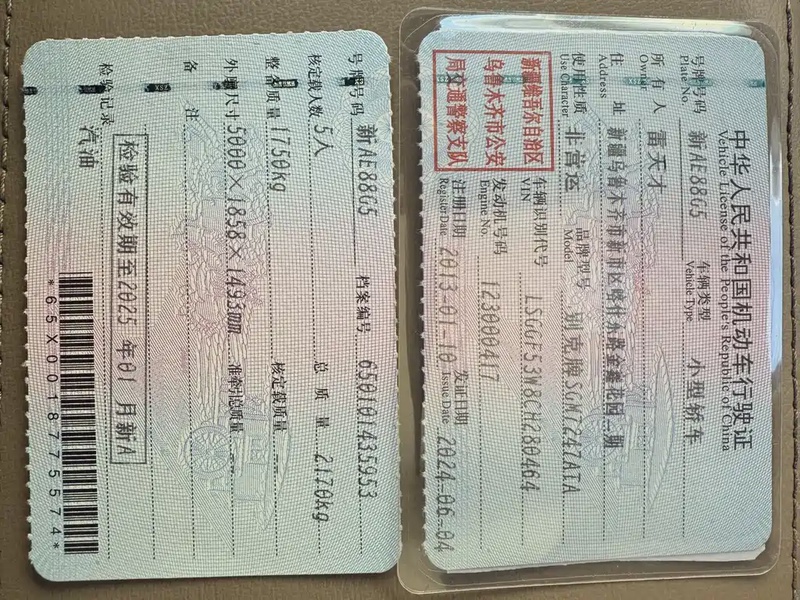 中华人民共和国机动车行驶证
Vehicle License of the People's Republic of China
号牌号码 新AE88G5 车辆类型 小型轿车
Plate No. Vehicle Type
所有人 雷天才
Owner
住址 新疆乌鲁木齐市新市区喀什东路金鑫花园二期
Address
使用性质 非营运 品牌型号 别克牌SGM7247ATA
Use Character Model
新疆维吾尔自治区
乌鲁木齐市公安
局交通警察支队
车辆识别代号 LSGGF53W8CH280464
VIN
发动机号码 123000417
Engine No.
注册日期 2013-01-10 发证日期 2024-06-04
Register Date Issue Date
号牌号码 新AE88G5 档案编号 650101435953
核定载人数 5人 总质量 2170kg
整备质量 1750kg 核定载质量 --
外廓尺寸 5000×1858×1493mm 准牵引总质量 --
备注
检验有效期至2025年01月新A
检验记录 汽油
*65X0018775574*